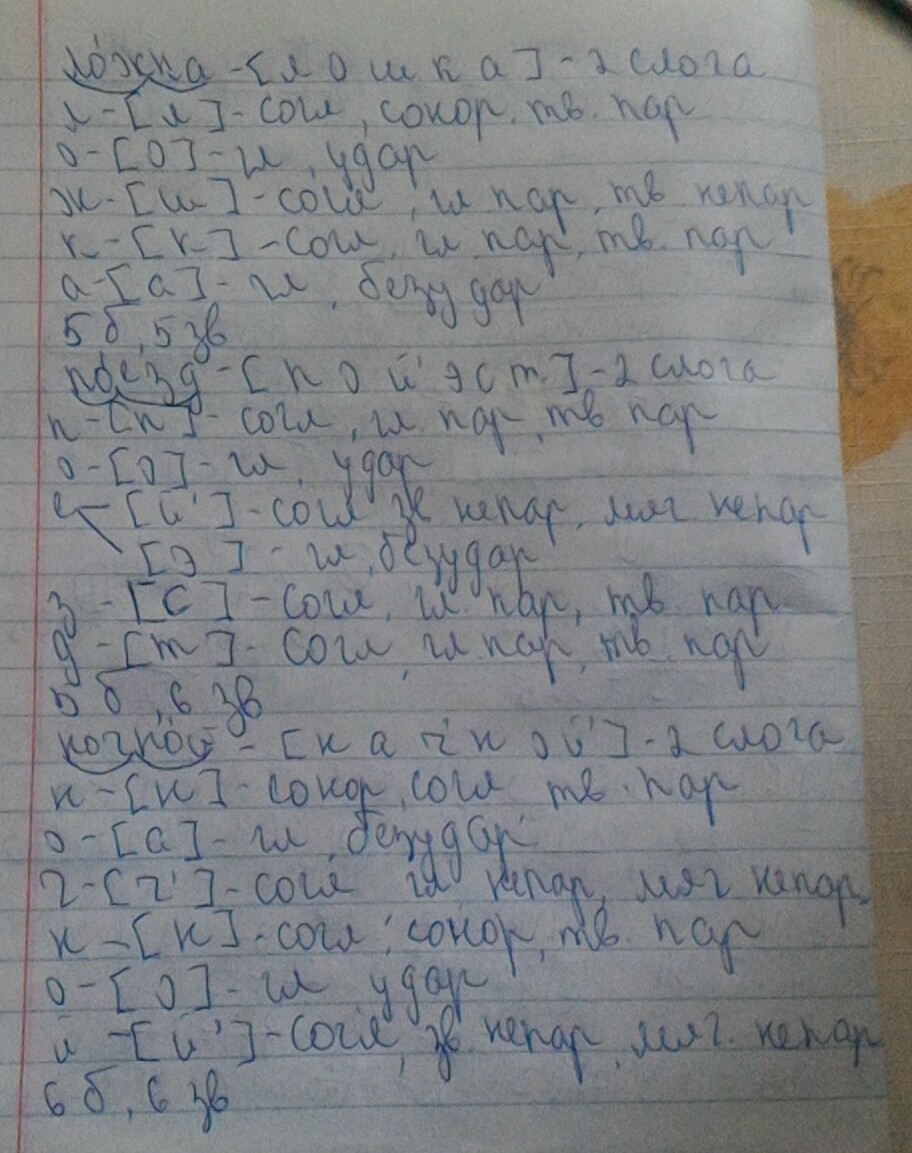 ложка - [л о ш к а] - 2 слога
л - [л] - согл, сонор. тв. пар
о - [о] - гл, удар
ж - [ш] - согл, гл пар, тв непар
к - [к] - согл, гл. пар, тв. пар
а - [а] - гл, безудар
5 б, 5 зв
поезд - [п о й' э с т] - 2 слога
п - [п] - согл, гл пар, тв пар
о - [о] - гл, удар
е - [й'] - согл зв непар, мяг непар
[э] - гл, безудар
з - [с] - согл, гл. пар, тв. пар
д - [т] - согл, гл. пар, тв. пар
5 б, 6 зв
ночной - [н а ч' н о й'] - 2 слога
н - [н] - сонор, согл тв. пар
о - [а] - гл, безудар
ч - [ч'] - согл гл непар, мяг непар.
н - [н] - согл, сонор, тв. пар
о - [о] - гл, удар
й - [й'] - согл, зв. непар, мяг. непар
6 б, 6 зв